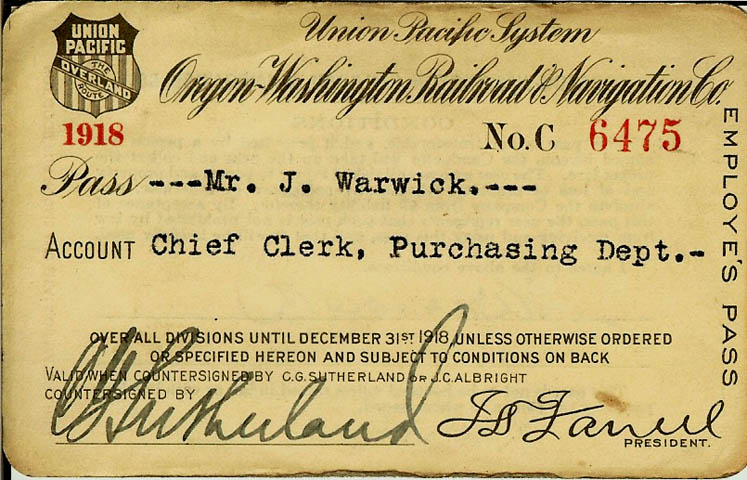 UNION
PACIFIC
THE
OVERLAND
ROUTE
Union Pacific System
Oregon-Washington Railroad & Navigation Co.
1918
No. C 6475
Pass ---Mr. J. Warwick.---
ACCOUNT Chief Clerk, Purchasing Dept.-
EMPLOYE'S PASS
OVER ALL DIVISIONS UNTIL DECEMBER 31ST 1918, UNLESS OTHERWISE ORDERED
OR SPECIFIED HEREON AND SUBJECT TO CONDITIONS ON BACK
VALID WHEN COUNTERSIGNED BY C.G. SUTHERLAND OR J.C. ALBRIGHT
COUNTERSIGNED BY
CGSutherland
PRESIDENT.